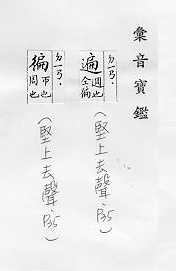 彙音寶鑑
ㄅㄧㄢ·
遍
週也
全偏
(堅上去聲、P35)
ㄅㄧㄢ·
徧
帀也
周也
(堅上去聲、P35)